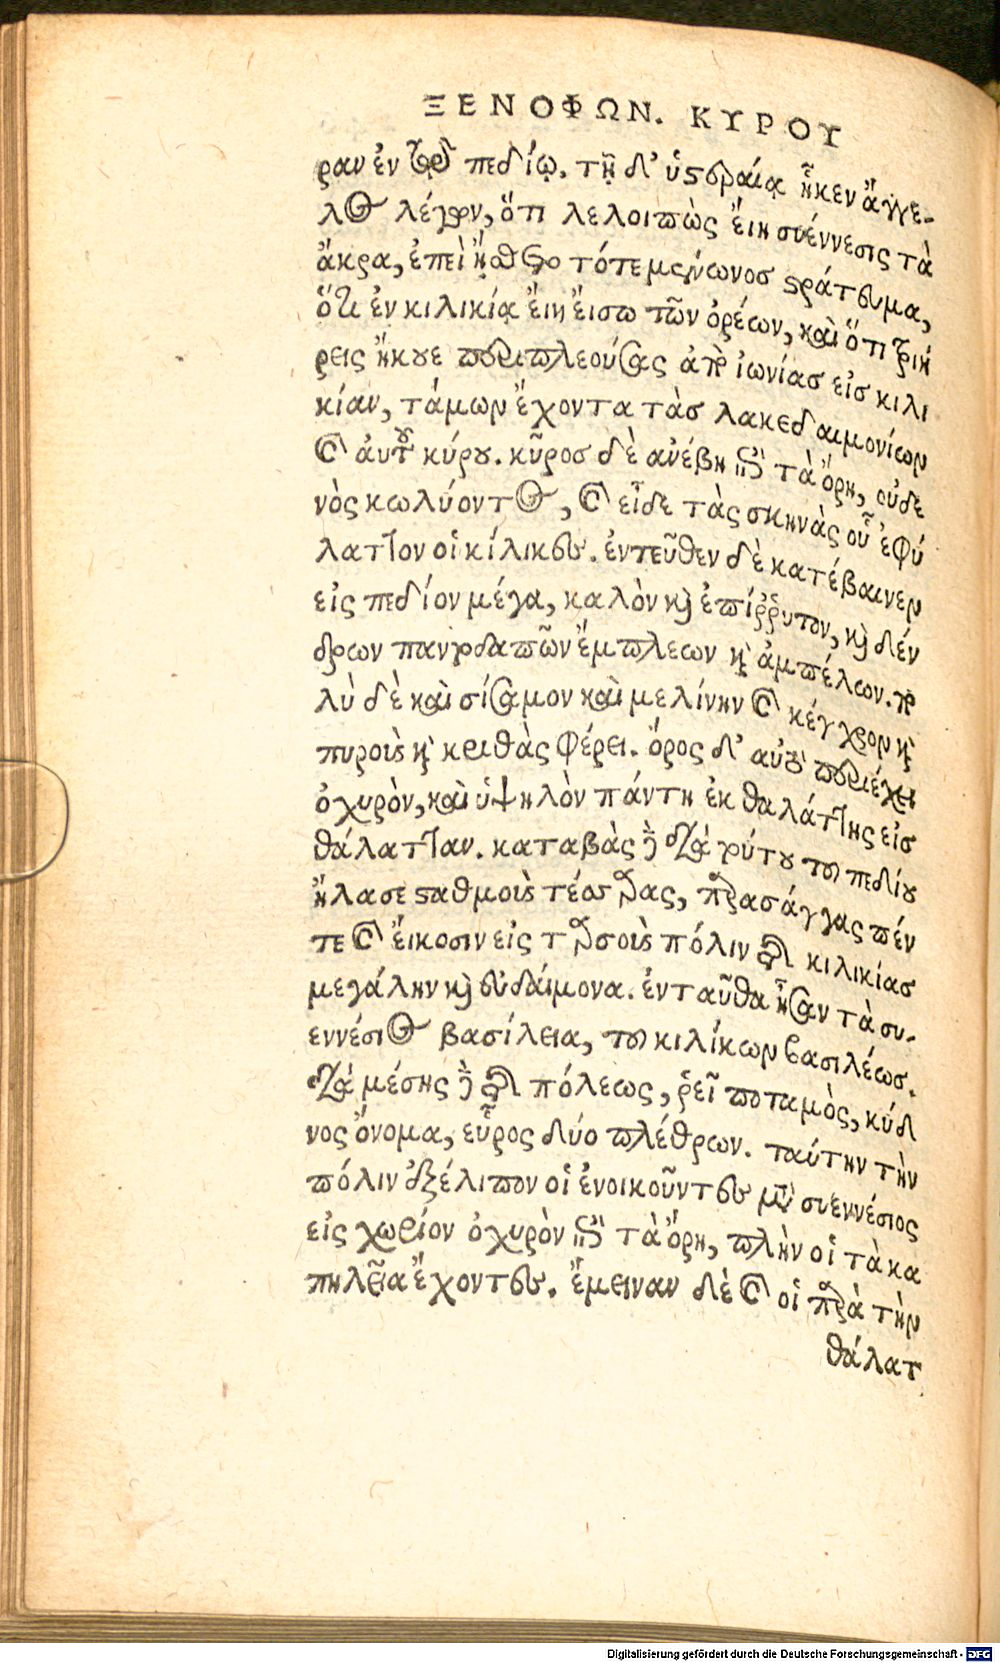 ΞΕΝΟΦΩΝ. ΚΥΡΟΥ
ραν ἐν τῷ πεδίῳ. τῇ δ’ ὑστεραίᾳ ἧκεν ἄγγε-
λος λέγων, ὅτι λελοιπὼς εἴη συέννεσις τὰ
ἄκρα, ἐπεὶ ᾔσθετο τότε μένωνοσ στράτευμα,
ὅτι ἐν κιλικίᾳ εἴη εἴσω τῶν ὀρέων, καὶ ὅτι τριή
ρεις ἤκουε περιπλεούσας ἀπ’ ἰωνίασ εἰσ κιλι
κίαν, τάμων ἔχοντα τὰσ λακεδαιμονίων
καὶ αὐτοῦ κύρου. κῦροσ δὲ ἀνέβη ἐπὶ τὰ ὄρη, οὐδε
νὸς κωλύοντος, καὶ εἶδε τὰς σκηνὰς οὗ ἐφύ
λαττον οἱ κίλικες. ἐντεῦθεν δὲ κατέβαινεν
εἰς πεδίον μέγα, καλὸν καὶ ἐπίῤῥυτον, καὶ δέν
δρων παντοδαπῶν ἔμπλεων καὶ ἀμπέλων. πο
λὺ δὲ καὶ σίσαμον καὶ μελίνην καὶ κέγχρον καὶ
πυροὺς καὶ κριθὰς φέρει. ὄρος δ’ αὐτὸ περιέχει
ὀχυρὸν, καὶ ὑψηλὸν πάντη ἐκ θαλάττης εἰσ
θάλατταν. καταβὰς δὲ διὰ τούτου τοῦ πεδίου
ἤλασε σταθμοὺς τέσσαρας, παρασάγγας πέν
τε καὶ εἴκοσιν εἰς ταρσοὺς πόλιν τῆς κιλικίασ
μεγάλην καὶ εὐδαίμονα. ἐνταῦθα ἦσαν τὰ συ-
εννέσιος βασίλεια, τοῦ κιλίκων βασιλέωσ.
διὰ μέσης δὲ τῆς πόλεως, ῥεῖ ποταμὸς, κύδ
νος ὄνομα, εὖρος δύο πλέθρων. ταύτην τὴν
πόλιν ἐξέλιπον οἱ ἐνοικοῦντες μετὰ συεννέσιος
εἰς χωρίον ὀχυρὸν ἐπὶ τὰ ὄρη, πλὴν οἱ τὰ κα
πηλεῖα ἔχοντες. ἔμειναν δὲ καὶ οἱ παρὰ τὴν
θάλατ
Digitalisierung gefördert durch die Deutsche Forschungsgemeinschaft - DFG